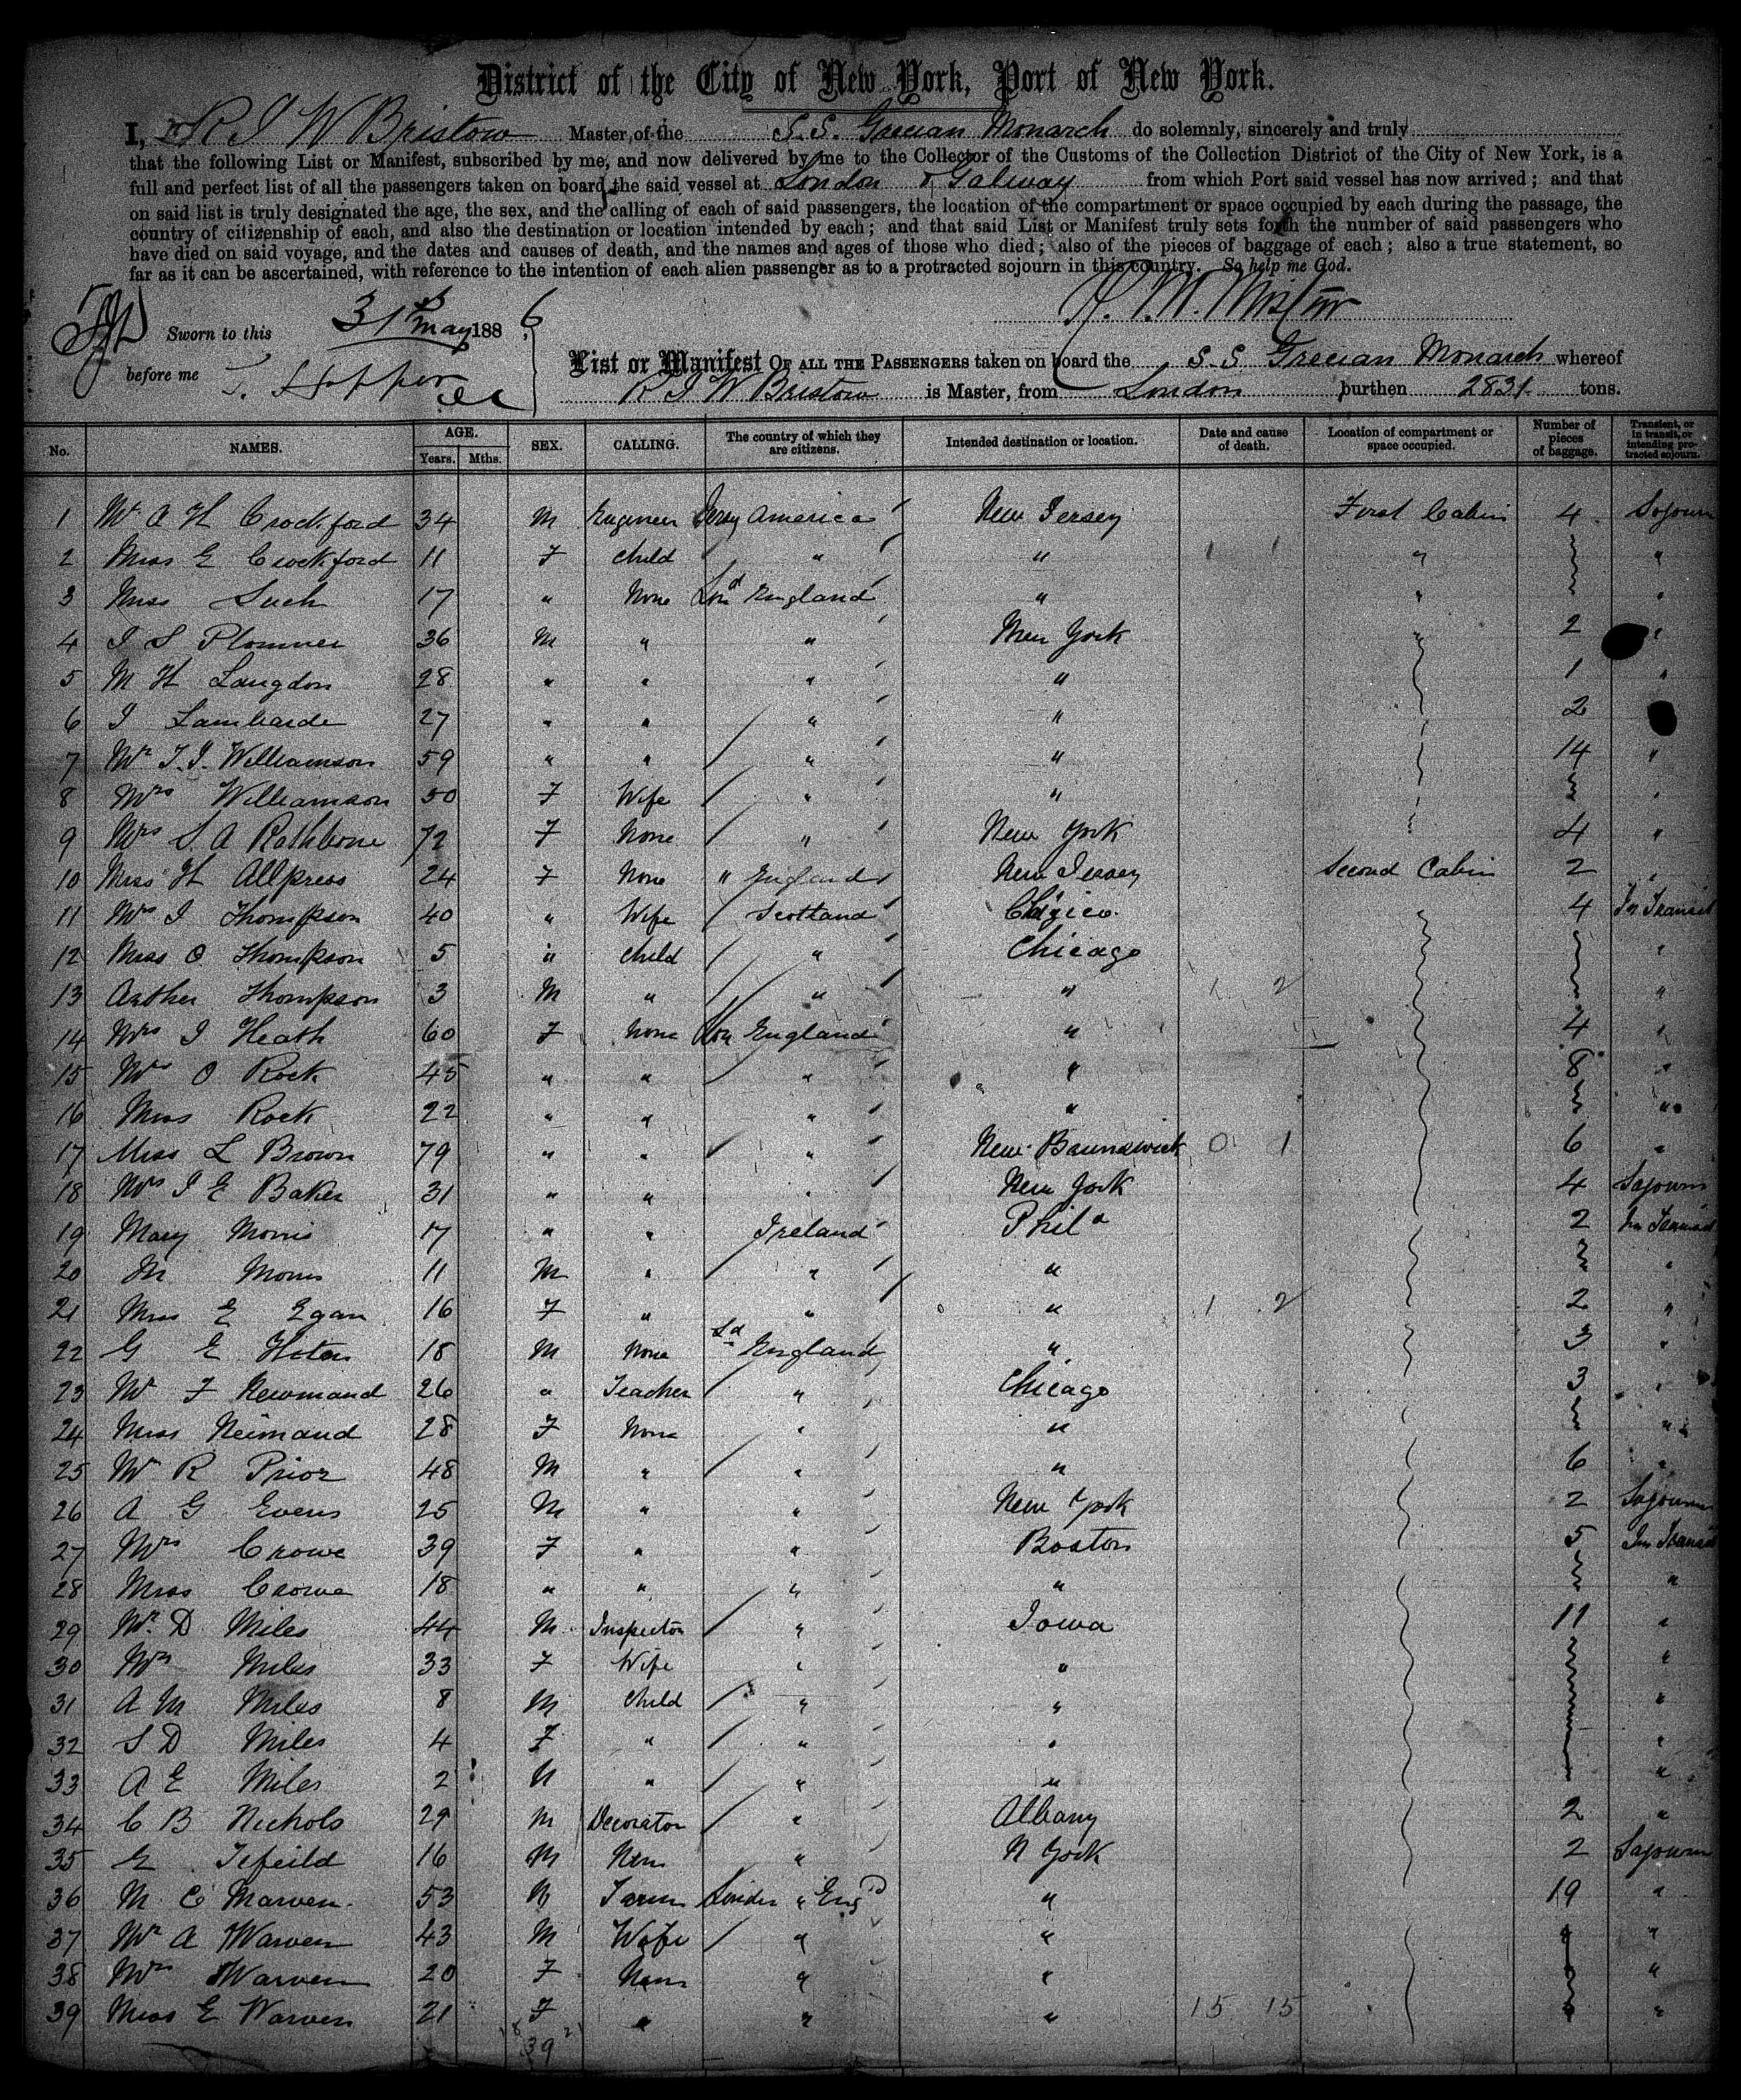 District of the City of New York, Port of New York.
I, R I W Bristow Master of the S.S. Grecian Monarch do solemnly, sincerely and truly
that the following List or Manifest, subscribed by me, and now delivered by me to the Collector of the Customs of the Collection District of the City of New York, is a
full and perfect list of all the passengers taken on board the said vessel at London & Galway from which Port said vessel has now arrived; and that
on said list is truly designated the age, the sex, and the calling of each of said passengers, the location of the compartment or space occupied by each during the passage, the
country of citizenship of each, and also the destination or location intended by each; and that said List or Manifest truly sets forth the number of said passengers who
have died on said voyage, and the dates and causes of death, and the names and ages of those who died; also of the pieces of baggage of each; also a true statement, so
far as it can be ascertained, with reference to the intention of each alien passenger as to a protracted sojourn in this country. So help me God.
Sworn to this 31st May 1886
before me
List or Manifest OF ALL THE PASSENGERS taken on board the S.S Grecian Monarch whereof
R I W Bristow is Master, from London burthen 2831 tons.
No. NAMES. AGE. Years. Mths. SEX. CALLING. The country of which they are citizens. Intended destination or location. Date and cause of death. Location of compartment or space occupied. Number of pieces of baggage. Transient, or in transit, or intending protracted sojourn.
1 Mr A H Crockford 34 M Engineer America New Jersey First Cabin 4 Sojourn
2 Miss E Crockford 11 F Child " " " "
3 Miss Such 17 " None Lond England " " "
4 I S Plomner 36 M " " New York " 2 "
5 M H Langdon 28 " " " " 1 "
6 I Lambarde 27 " " " " 2
7 Mr T.I. Williamson 59 " " " " 14 "
8 Mrs Williamson 50 F Wife " " "
9 Mrs S A Rathbone 72 F None " New York 4 "
10 Miss H Allpress 24 F None " England New Jersey Second Cabin 2 "
11 Mrs I Thompson 40 " Wife Scotland 4 In Transit
12 Miss O Thompson 5 " Child " Chicago "
13 Arthur Thompson 3 M " " " 1 2 "
14 Mrs I Heath 60 F None Lon England " 4 "
15 Mrs O Rock 45 " " " " 8 "
16 Miss Rock 22 " " " " "
17 Miss L Brown 79 " " " New Brunswick 0 1 6 "
18 Mrs I E Baker 31 " " " New York 4 Sojourn
19 Mary Morris 17 " " Ireland Phila 2 In Transit
20 M Morris 11 M " " " "
21 Miss E Egan 16 F " " " 1 2 2 "
22 G E Hoten 18 M None Ld England " 3 "
23 Mr F Newmand 26 " Teacher " Chicago 3 "
24 Miss Neimand 28 F None " " "
25 Mr R Prior 48 M " " " 6 "
26 A G Evens 25 M " " New York 2 Sojourn
27 Mrs Crowe 39 F " " Boston 5 In Transit
28 Miss Crowe 18 " " " " "
29 Mr. D Miles 44 M Inspector " Iowa 11 "
30 Mrs Miles 33 F Wife " " "
31 A M Miles 8 M Child " " "
32 S D Miles 4 F " " " "
33 A E Miles 2 " " " "
34 C B Nichols 29 M Decorator " Albany 2 "
35 E Tefeild 16 M " N York 2 Sojourn
36 M C Marven 53 " Engd " 19 "
37 Mr A Warven 43 M Wife " " "
38 Mrs Warven 20 F " " "
39 Miss E Warven 21 F " " " 15 15 "
18 39 21